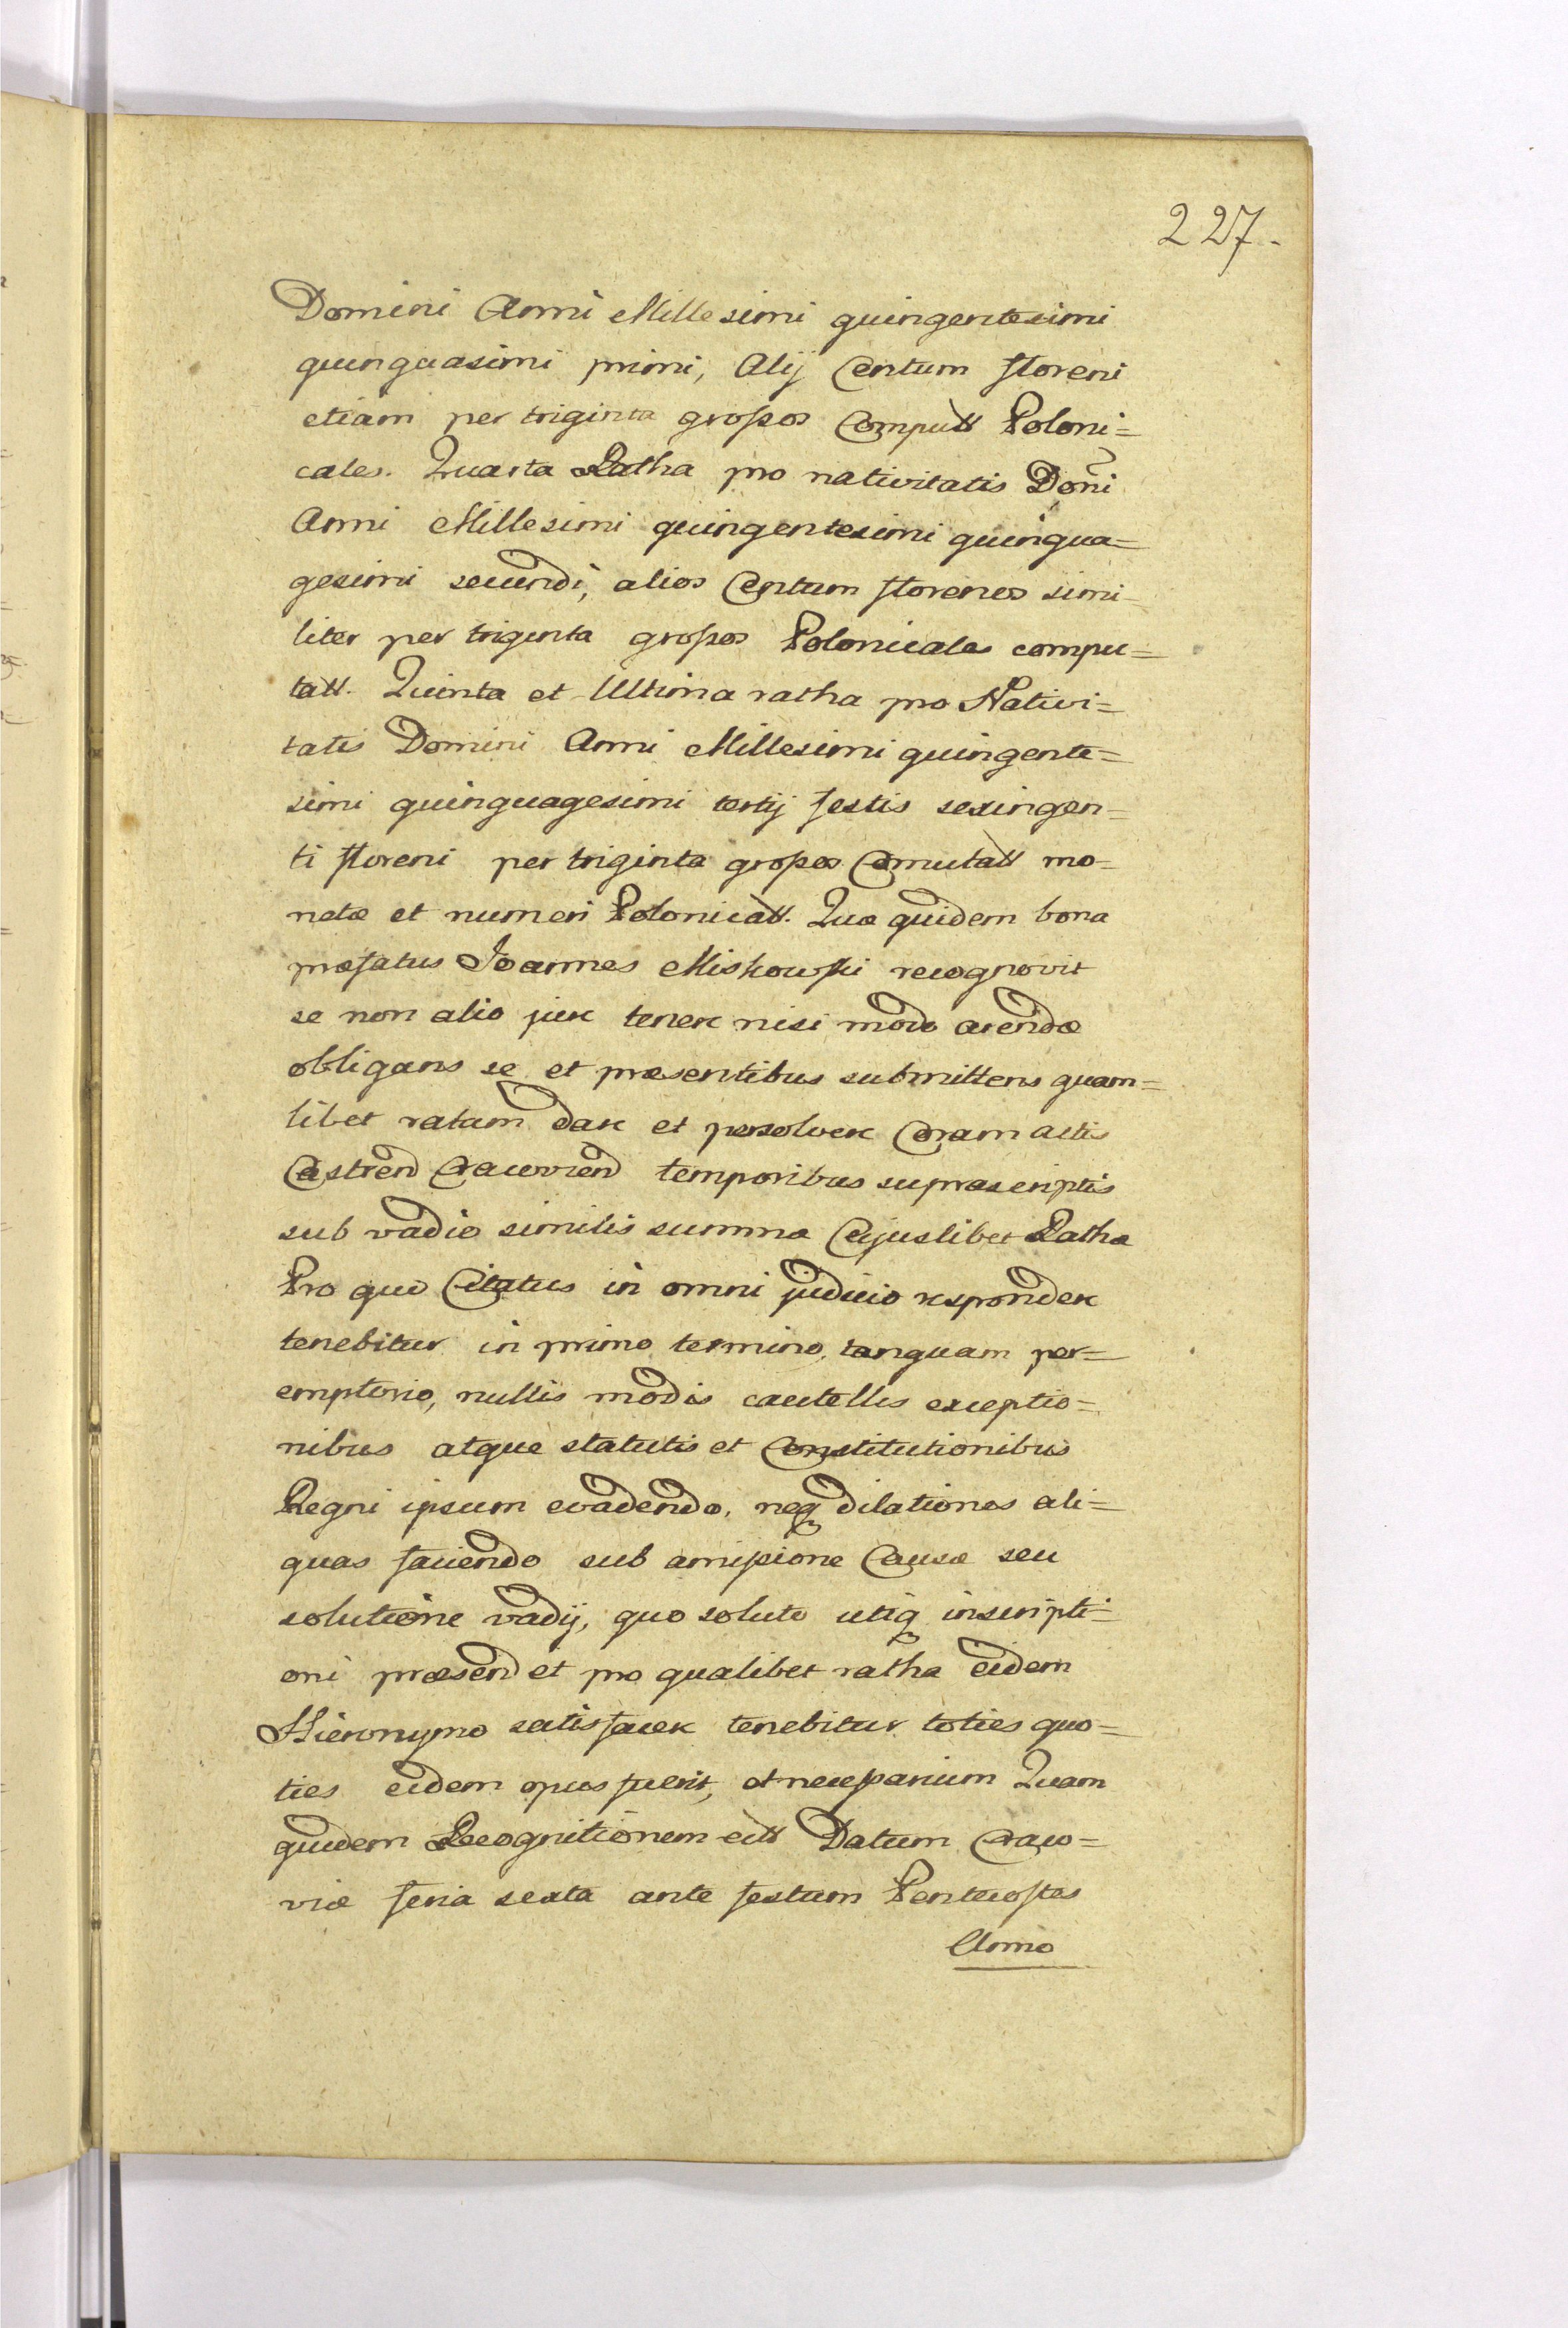 227.
Domini Anni Millesimi quingentesimi
quinquasimi primi, Alij Centum floreni
etiam per triginta grossos Computt Poloni=
cales. Quarta Ratha pro nativitatis Domi
Anni Millesimi quingentesimi quinqua=
gesimi secundi, alios Centum florenos simi=
liter per triginta grossos Polonicales compu=
tatt. Quinta et Ultima ratha pro Nativi=
tatis Domini Anni Millesimi quingente=
simi quinquagesimi tertij festis sexingen=
ti floreni per triginta grossos Comutatt mo=
netæ et numeri Polonicatt. Quæ quidem bona
præfatus Joannes Miskowski recognovit
se non alio jure tenere nisi modo arendæ
obligans se et præsentibus submittens quam=
libet ratam dare et persolvere Coram actis
Castren Cracovien temporibus suprascriptis
sub vadio similis summæ Cujuslibet Rathæ
Pro quo Citatus in omni judicio respondere
tenebitur in primo termino, tanquam per=
emptorio, nullis modis cautellis exceptio=
nibus atque statutis et Constitutionibus
Regni ipsum evadendo, neq dilationes ali=
quas faciendo sub amissione Causæ seu
solutione vadij, quo soluto utiq inscripti=
oni præsen et pro qualibet ratha eidem
Hieronymo satisfacere tenebitur toties quo=
ties eidem opus fuerit, et necessarium Quam
quidem Recognitionem ettt Datum Craco=
viæ feria sexta ante festum Pentecostes
Anno